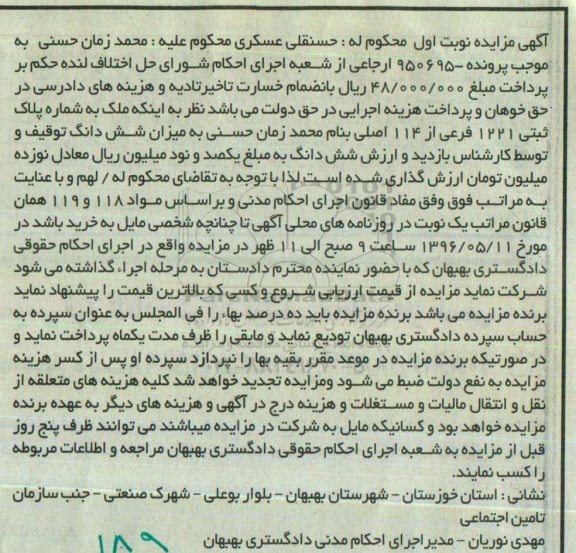 آگهی مزایده نوبت اول محکوم له : حسنقلی عسکری محکوم علیه : محمد زمان حسنی به
موجب پرونده -۹۵۰۶۹۵ ارجاعی از شعبه اجرای احکام شورای حل اختلاف لنده حکم بر
پرداخت مبلغ ۴۸/۰۰۰/۰۰۰ ریال بانضمام خسارت تاخیرتادیه و هزینه های دادرسی در
حق خوهان و پرداخت هزینه اجرایی در حق دولت می باشد نظر به اینکه ملک به شماره پلاک
ثبتی ۱۲۲۱ فرعی از ۱۱۴ اصلی بنام محمد زمان حسنی به میزان شش دانگ توقیف و
توسط کارشناس بازدید و ارزش شش دانگ به مبلغ یکصد و نود میلیون ریال معادل نوزده
میلیون تومان ارزش گذاری شده است لذا با توجه به تقاضای محکوم له / لهم و با عنایت
به مراتب فوق وفق مفاد قانون اجرای احکام مدنی و براساس مواد ۱۱۸ و ۱۱۹ همان
قانون مراتب یک نوبت در روزنامه های محلی آگهی تا چنانچه شخصی مایل به خرید باشد در
مورخ ۱۳۹۶/۰۵/۱۱ ساعت ۹ صبح الی ۱۱ ظهر در مزایده واقع در اجرای احکام حقوقی
دادگستری بهبهان که با حضور نماینده محترم دادستان به مرحله اجراء گذاشته می شود
شرکت نماید مزایده از قیمت ارزیابی شروع و کسی که بالاترین قیمت را پیشنهاد نماید
برنده مزایده می باشد برنده مزایده باید ده درصد بهاء را فی المجلس به عنوان سپرده به
حساب سپرده دادگستری بهبهان تودیع نماید و مابقی را ظرف مدت یکماه پرداخت نماید و
در صورتیکه برنده مزایده در موعد مقرر بقیه بها را نپردازد سپرده او پس از کسر هزینه
مزایده به نفع دولت ضبط می شود ومزایده تجدید خواهد شد کلیه هزینه های متعلقه از
نقل و انتقال مالیات و مستغلات و هزینه درج در آگهی و هزینه های دیگر به عهده برنده
مزایده خواهد بود و کسانیکه مایل به شرکت در مزایده میباشند می توانند ظرف پنج روز
قبل از مزایده به شعبه اجرای احکام حقوقی دادگستری بهبهان مراجعه و اطلاعات مربوطه
را کسب نمایند.
نشانی : استان خوزستان - شهرستان بهبهان - بلوار بوعلی - شهرک صنعتی - جنب سازمان
تامین اجتماعی
مهدی نوریان - مدیر اجرای احکام مدنی دادگستری بهبهان
۱۸۹